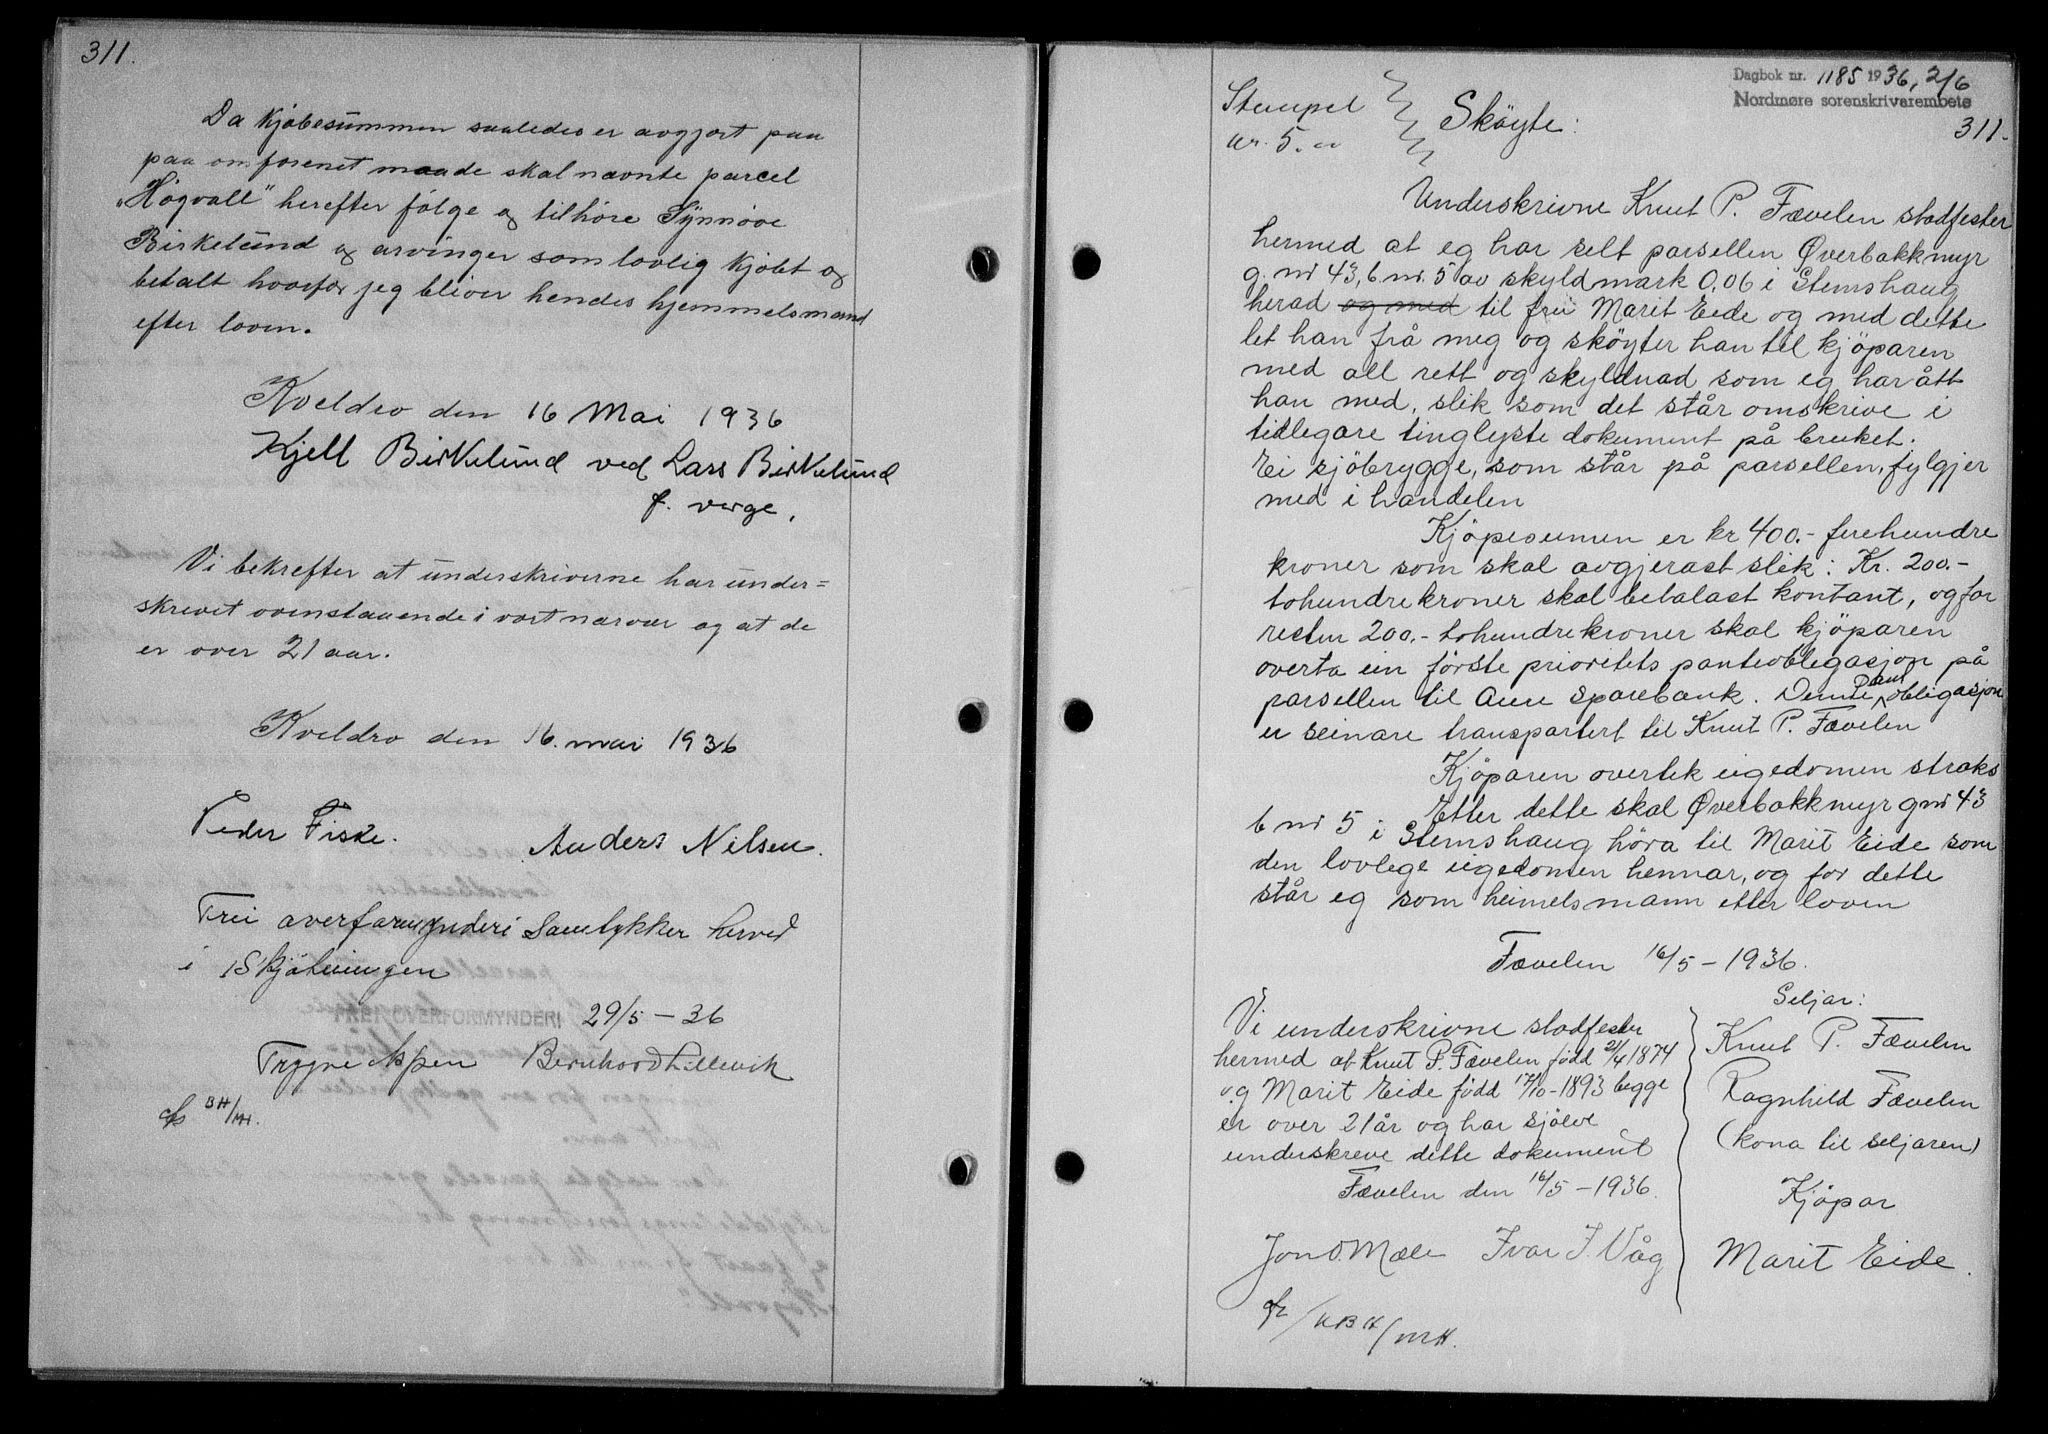 311.
Da kjøbesummen saaledes er avgjort paa
paa omforenet maade skal nævnte parcel
„Högvall" herefter følge og tilhøre Synnøve
Birkelund og arvinger som lovlig kjøbt og
betalt hvorfor jeg bliver hendes hjemmelsmand
efter loven.
Kveldro den 16 Mai 1936
Kjell Birkelund ved Lars Birkelund
f. verge.
Vi bekrefter at underskriverne har under=
skrevet ovenstaaende i vort nærvær og at de
er over 21 aar.
Kveldro den 16. mai 1936
Peder Fiske. Anders Nilsen.
Frei overformynderi samtykker herved
i skjøtningen
FREI OVERFORMYNDERI 29/5 - 36
Trygve Aspen Bernhard Lillevik
BH/MH.
Dagbok nr. 1185 1936, 2/6
Nordmøre sorenskrivarembete
311.
Stempel
kr. 5.00
Sköyte:
Underskrivne Knut P. Fævelen stadfester
hermed at eg har selt parsellen Øverbakkmyr
g. nr 43, b. nr. 5 av skyldmark 0,06 i Stemshaug
herad og med til fru Marit Eide og med dette
let han frå meg og sköyter han til kjöparen
med all rett og skyldnad som eg har ått
han med, slik som det står omskrive i
tidlegare tinglyste dokument på bruket.
Ei sjöbrygge, som står på parsellen, fylgjer
med i handelen
Kjöpesumen er kr 400.- firehundre
kroner som skal avgjerast slik: Kr. 200.-
tohundrekroner skal betalast kontant, og for
resten 200.- tohundrekroner skal kjöparen
overta ein förste prioritets panteobligasjon på
parsellen til Aure Sparebank. Denne Pantobligasjon
er seinare transportert til Knut P. Fævelen
Kjöparen overtek eigedomen straks
Etter dette skal Øverbakkmyr gnr 43
b nr 5 i Stemshaug höra til Marit Eide som
den lovlege eigedomen hennar, og for dette
står eg som heimelsmann etter loven
Fævelen 16/5 - 1936.
Seljar:
Vi underskrivne stadfester
hermed at Knut P. Fævelen född 21/4 1874
og Marit Eide född 17/10 - 1893 begge
er over 21 år og har sjölve
underskreve dette dokument
Fævelen den 16/5 - 1936.
Jon O. Mæle Ivar J. Våg
Knut P. Fævelen
Ragnhild Fævelen
(kona til seljaren)
Kjöpar
Marit Eide.
/KBH/MH.